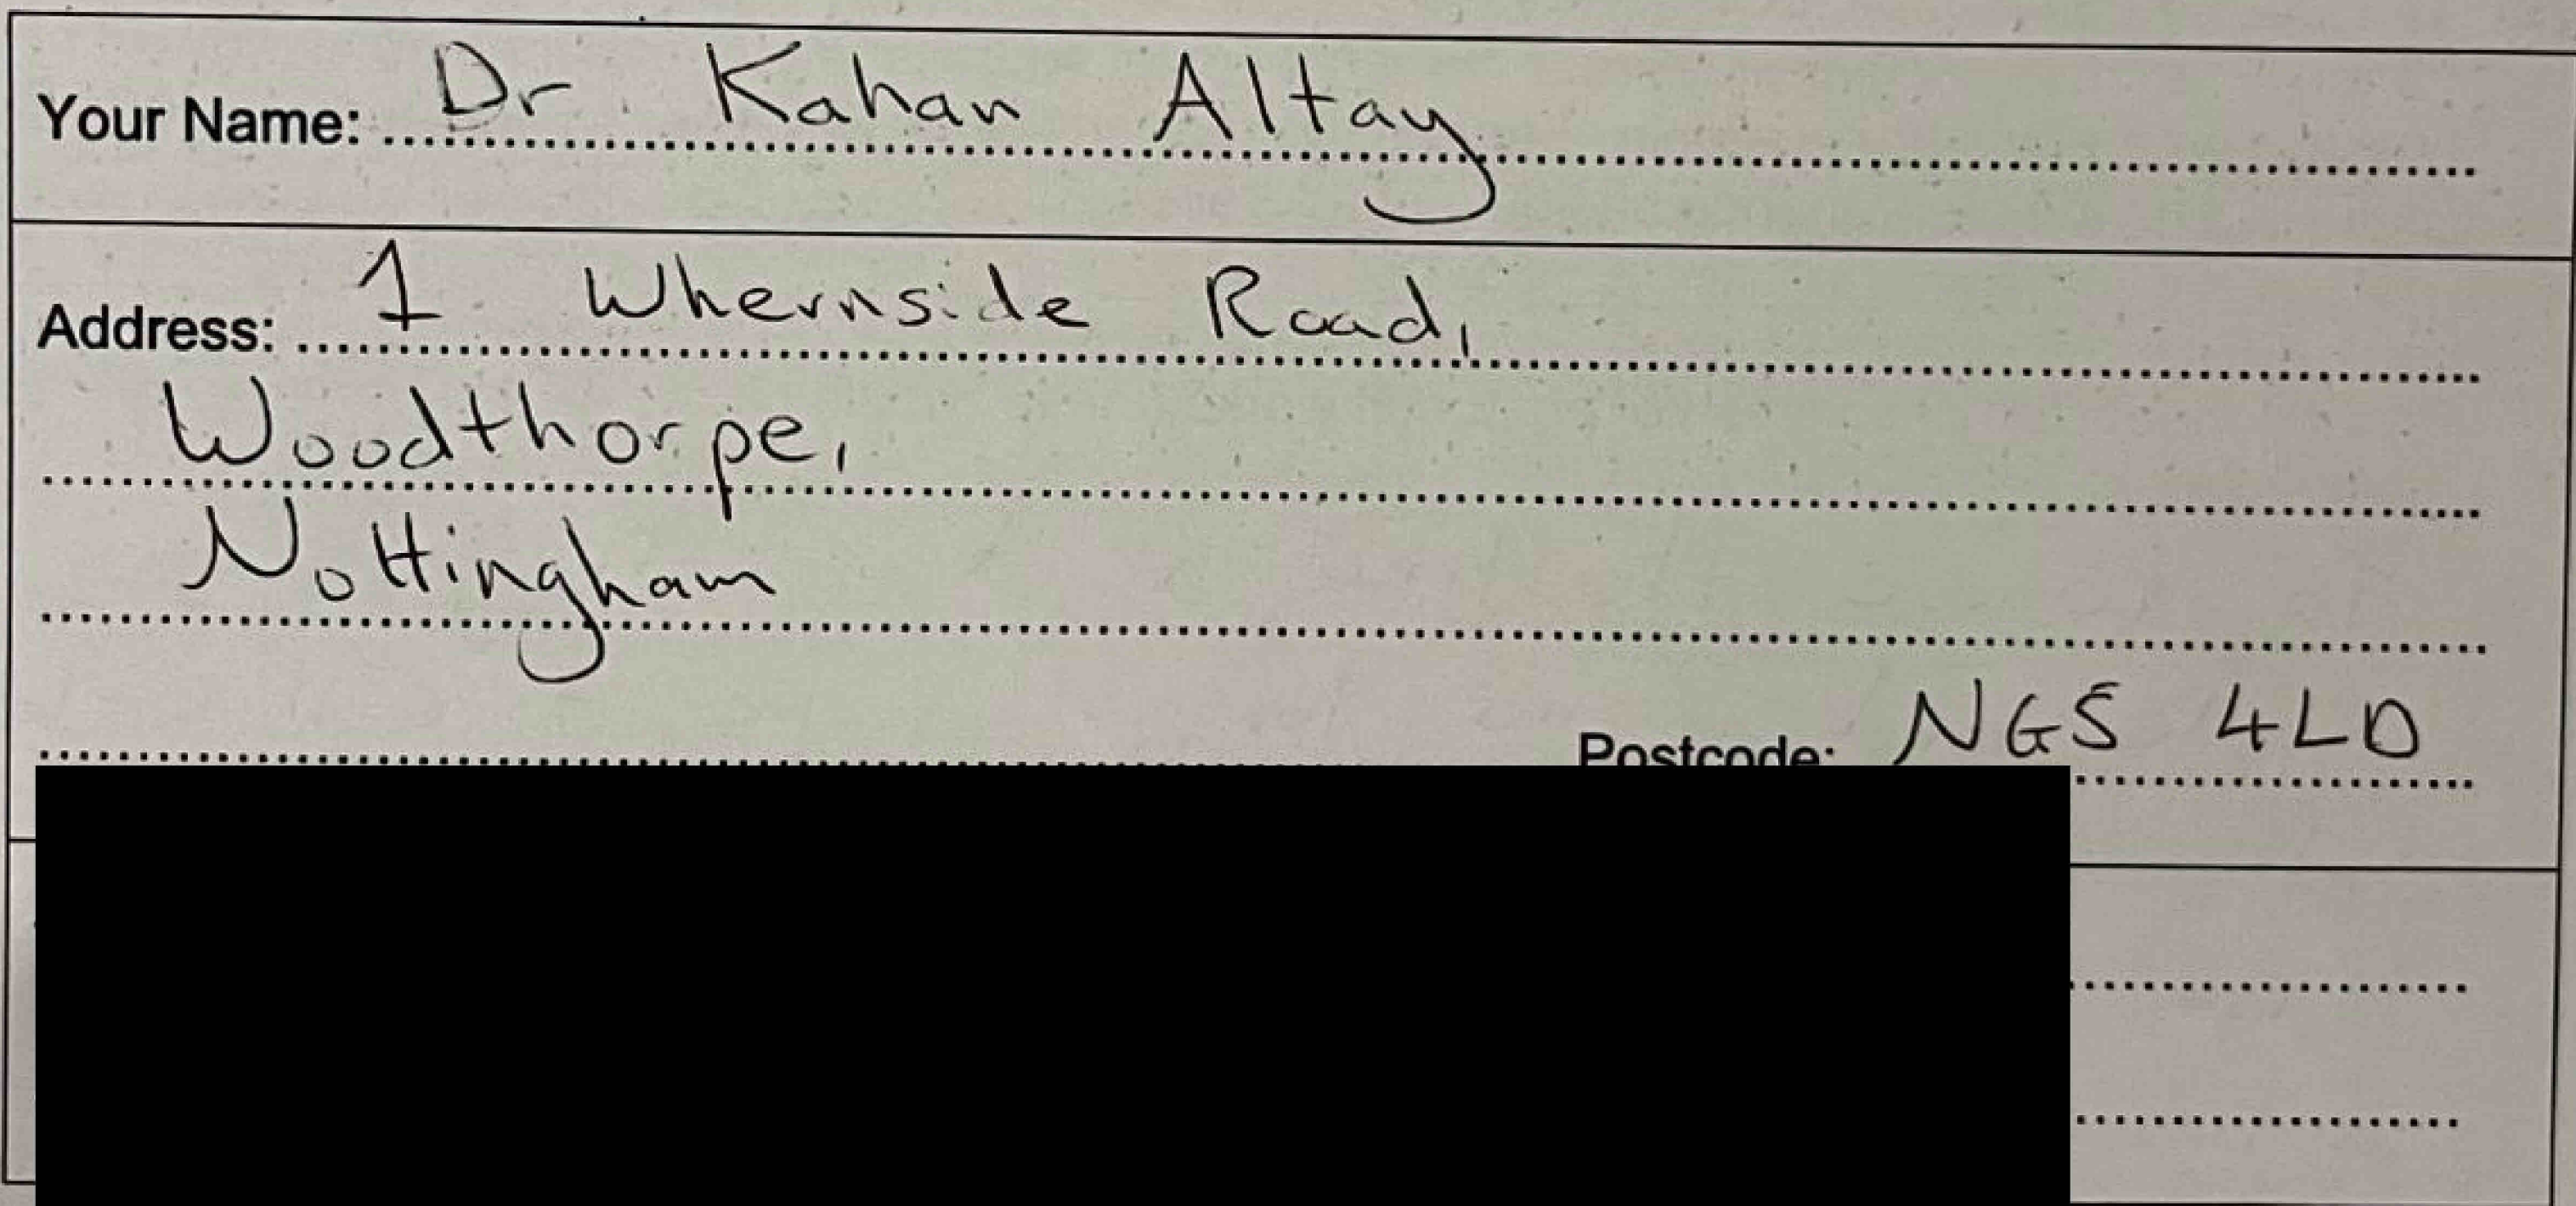 Your Name: Dr Kahan Altay
Address: 1 Whernside Road,
Woodthorpe,
Nottingham
Postcode: NG5 4LD